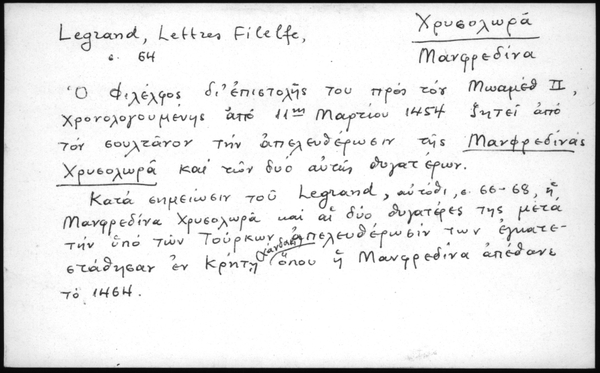 Legrand, Lettres Filelfe,
σ. 64
Χρυσολωρᾶ
Μανφρεδίνα
Ὁ Φιλέλφος δι' ἐπιστολῆς του πρός τόν Μωαμέθ II,
χρονολογουμένης ἀπό 11ης Μαρτίου 1454 ζητεῖ ἀπό
τόν σουλτᾶνον τήν ἀπελευθέρωσιν τῆς Μανφρεδίνας
Χρυσολωρᾶ καί τῶν δύο αὐτῆς θυγατέρων.
Κατά σημείωσιν τοῦ Legrand, αὐτόθι, σ. 66-68, ἡ
Μανφρεδίνα Χρυσολωρᾶ καί αἱ δύο θυγατέρες της μετά
τήν ὑπό τῶν Τούρκων ἀπελευθέρωσίν των ἐγκατε-
στάθησαν ἐν Κρήτῃ (Χάνδακι) ὅπου ἡ Μανφρεδίνα ἀπέθανε
τό 1464.